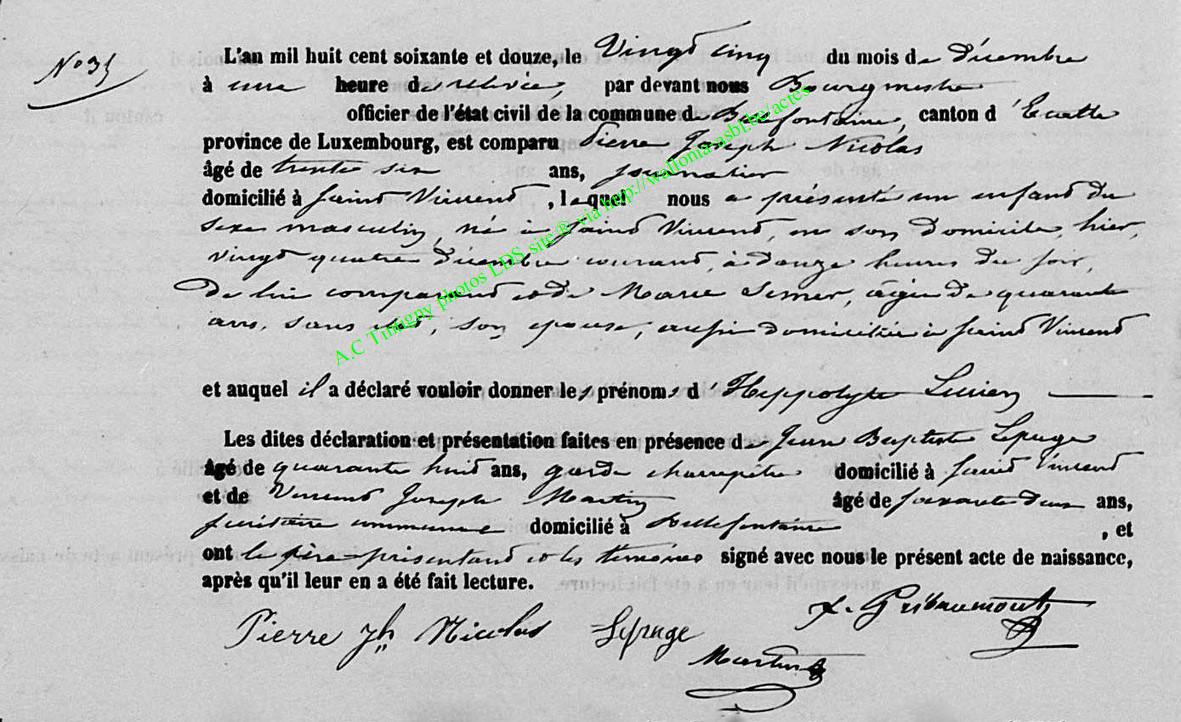 No 35
L'an mil huit cent soixante et douze, le Vingt cinq du mois de décembre
à une heure de relevée, par devant nous Bourgmestre
officier de l'état civil de la commune de Bellefontaine, canton d'Etalle
province de Luxembourg, est comparu Pierre Joseph Nicolas
âgé de trente six ans, journalier
domicilié à Saint Vincent, lequel nous a présenté un enfant du
sexe masculin, né à Saint Vincent, en son domicile, hier,
vingt quatre décembre courant, à douze heures du soir,
de lui comparant et de Marie Simer, âgée de quarante
ans, sans état, son épouse, aussi domiciliée à Saint Vincent
et auquel il a déclaré vouloir donner les prénoms d'Hyppolyte Lucien
Les dites déclaration et présentation faites en présence de Jean Baptiste Lepage
âgé de quarante huit ans, garde champêtre domicilié à Saint Vincent
et de Vincent Joseph Martin âgé de soixante deux ans,
secrétaire communal domicilié à Bellefontaine, et
ont le père présentant et les témoins signé avec nous le présent acte de naissance,
après qu'il leur en a été fait lecture.
Pierre Jh Nicolas Lepage Gribaumont
Martin
A.C Tintigny photos LDS site ® via http://wallonia-asbl.be/actes